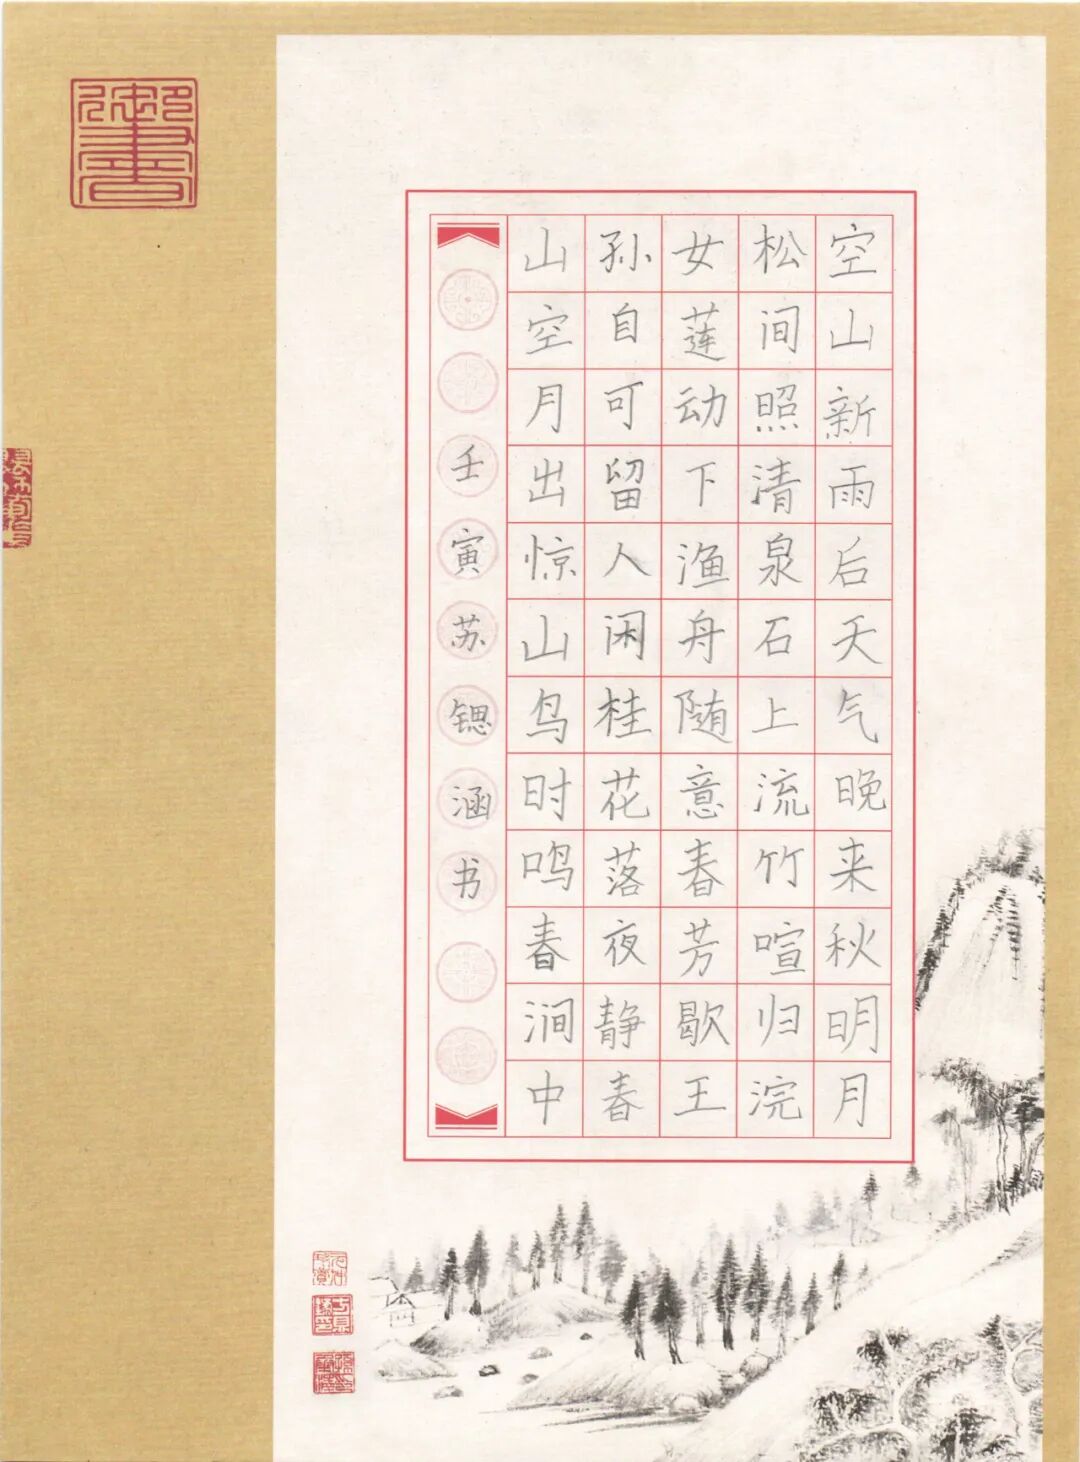 空山新雨后天气晚来秋明月
松间照清泉石上流竹喧归浣
女莲动下渔舟随意春芳歇王
孙自可留人闲桂花落夜静春
山空月出惊山鸟时鸣春涧中
壬寅苏锶涵书